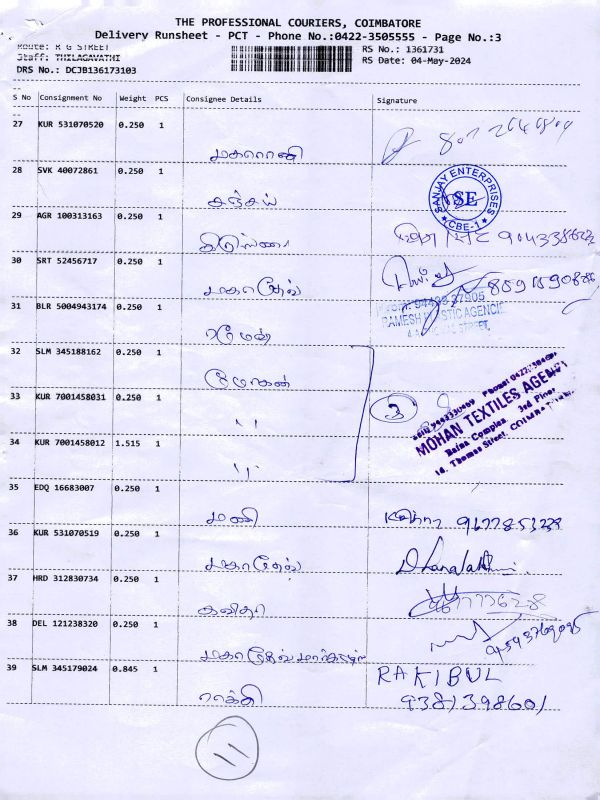 THE PROFESSIONAL COURIERS, COIMBATORE
Delivery Runsheet - PCT - Phone No.:0422-3505555 - Page No.:3
Route: R G STREET
RS No.: 1361731
Staff: THILAGAVATHI
RS Date: 04-May-2024
DRS No.: DCJB136173103
S No Consignment No Weight PCS Consignee Details Signature
27 KUR 531070520 0.250 1
மகாராணி
28 SVK 40072861 0.250 1
சஞ்சய்
SANJAY ENTERPRISES
SE
CBE-1
29 AGR 100313163 0.250 1
30 SRT 52456717 0.250 1
மகாதேவ்
31 BLR 5004943174 0.250 1
94433 37905
RAMESH PLASTIC AGENCIES
ரமேஷ்
32 SLM 345188162 0.250 1
மோகன்
33 KUR 7001458031 0.250 1
"
3
MOHAN TEXTILES AGENCY
Baina Complex 3rd Floor
14, Thomas Street,
34 KUR 7001458012 1.515 1
"
35 EDQ 16683007 0.250 1
மணி
36 KUR 531070519 0.250 1
மகாதேவ்
37 HRD 312830734 0.250 1
கவிதா
38 DEL 121238320 0.250 1
39 SLM 345179024 0.845 1
RAKIBUL
ராக்கி
9381398601
11